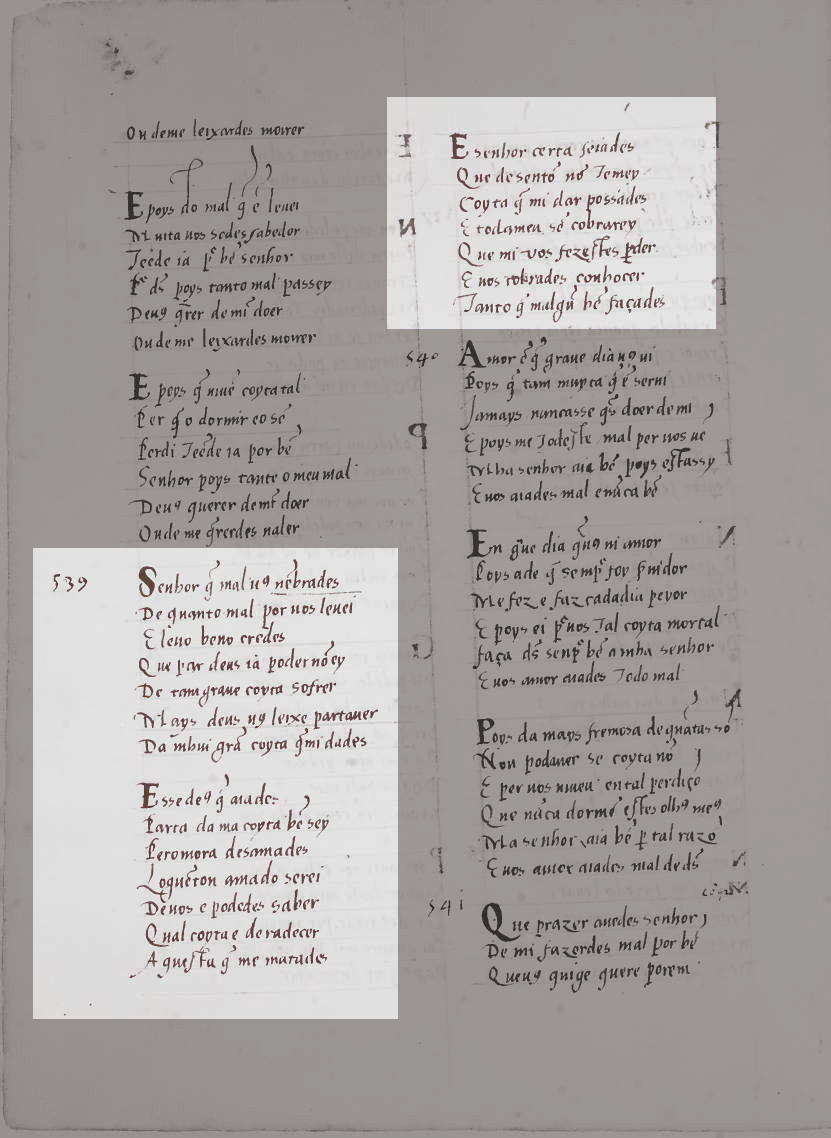 Ou deme leixardes morrer
E poys do mal q̃ ẽ leuei
Muita uos sodes sabedor
Teẽde ia pͥ bẽ senhor
Pͥ ds̃ poys tanto mal passey
Deu9 q̃rer de mĩ doer
Ou de me leixardes morrer
E poys q̃ uiuẽ coyta tal
Per q̃ o dormir eo sẽ
Perdi Teẽde ia por bẽ
Senhor poys tante o meu mal
Deu9 querer demĩ doer
Ou de me q̃rerdes ualer
539
Senhor q̃ mal u9 nẽbrades
De quanto mal por uos leuei
E leuo beno credes
Que par deus ia poder nõ ey
De tam graue coyta sofrer
Mays deus u9 leixe partauer
Da mhui grã coyta q̃mi dades
E sse de9 q̃ aiades
Parta da ma coyta bẽ sey
Pero mora desamades
Loguẽ ton amado serei
De uos e podedes saber
Qual coyta e de radecer
Aquesta q̃ me matades
E senhor certa seiades
Que desentõ nõ Temey
Coyta q̃ mi dar possades
E todameu sẽ cobrarey
Que mi uos fezestes p̃der
E uos cobrades conhocer
Tanto q̃ malgũ bẽ façades
540
Amor ẽ q̃ graue dia u9 ui
Poys q̃ tam muyta q̃ ẽ serui
Jamays nuncasse q̃s doer de mi
E poys me Todeste mal per uos ue
Mha senhor aia bẽ poys estassy
E uos aiades mal enũca bẽ
Em gͣue dia q̃ u9 ui amor
Poys a de q̃ sempͥ foy s̃uidor
Me fez e faz cada dia peyor
E poys ei pͥ uos Tal coyta mortal
Faça ds̃ senpͥ bẽ a mha senhor
E uos amor aiades Todo mal
Poys da mays fremosa de quãtas so
Non podauer se coyta nõ
E per uos uiueu en tal perdiçõ
Que nũca dormẽ estes olh9 me9
Ma senhor aia bẽ p̃ tal razõ
E uos amor aiades mal de ds̃
541
Que prazer auedes senhor
De mi fazerdes mal por bẽ
Queu9 quige quere porem